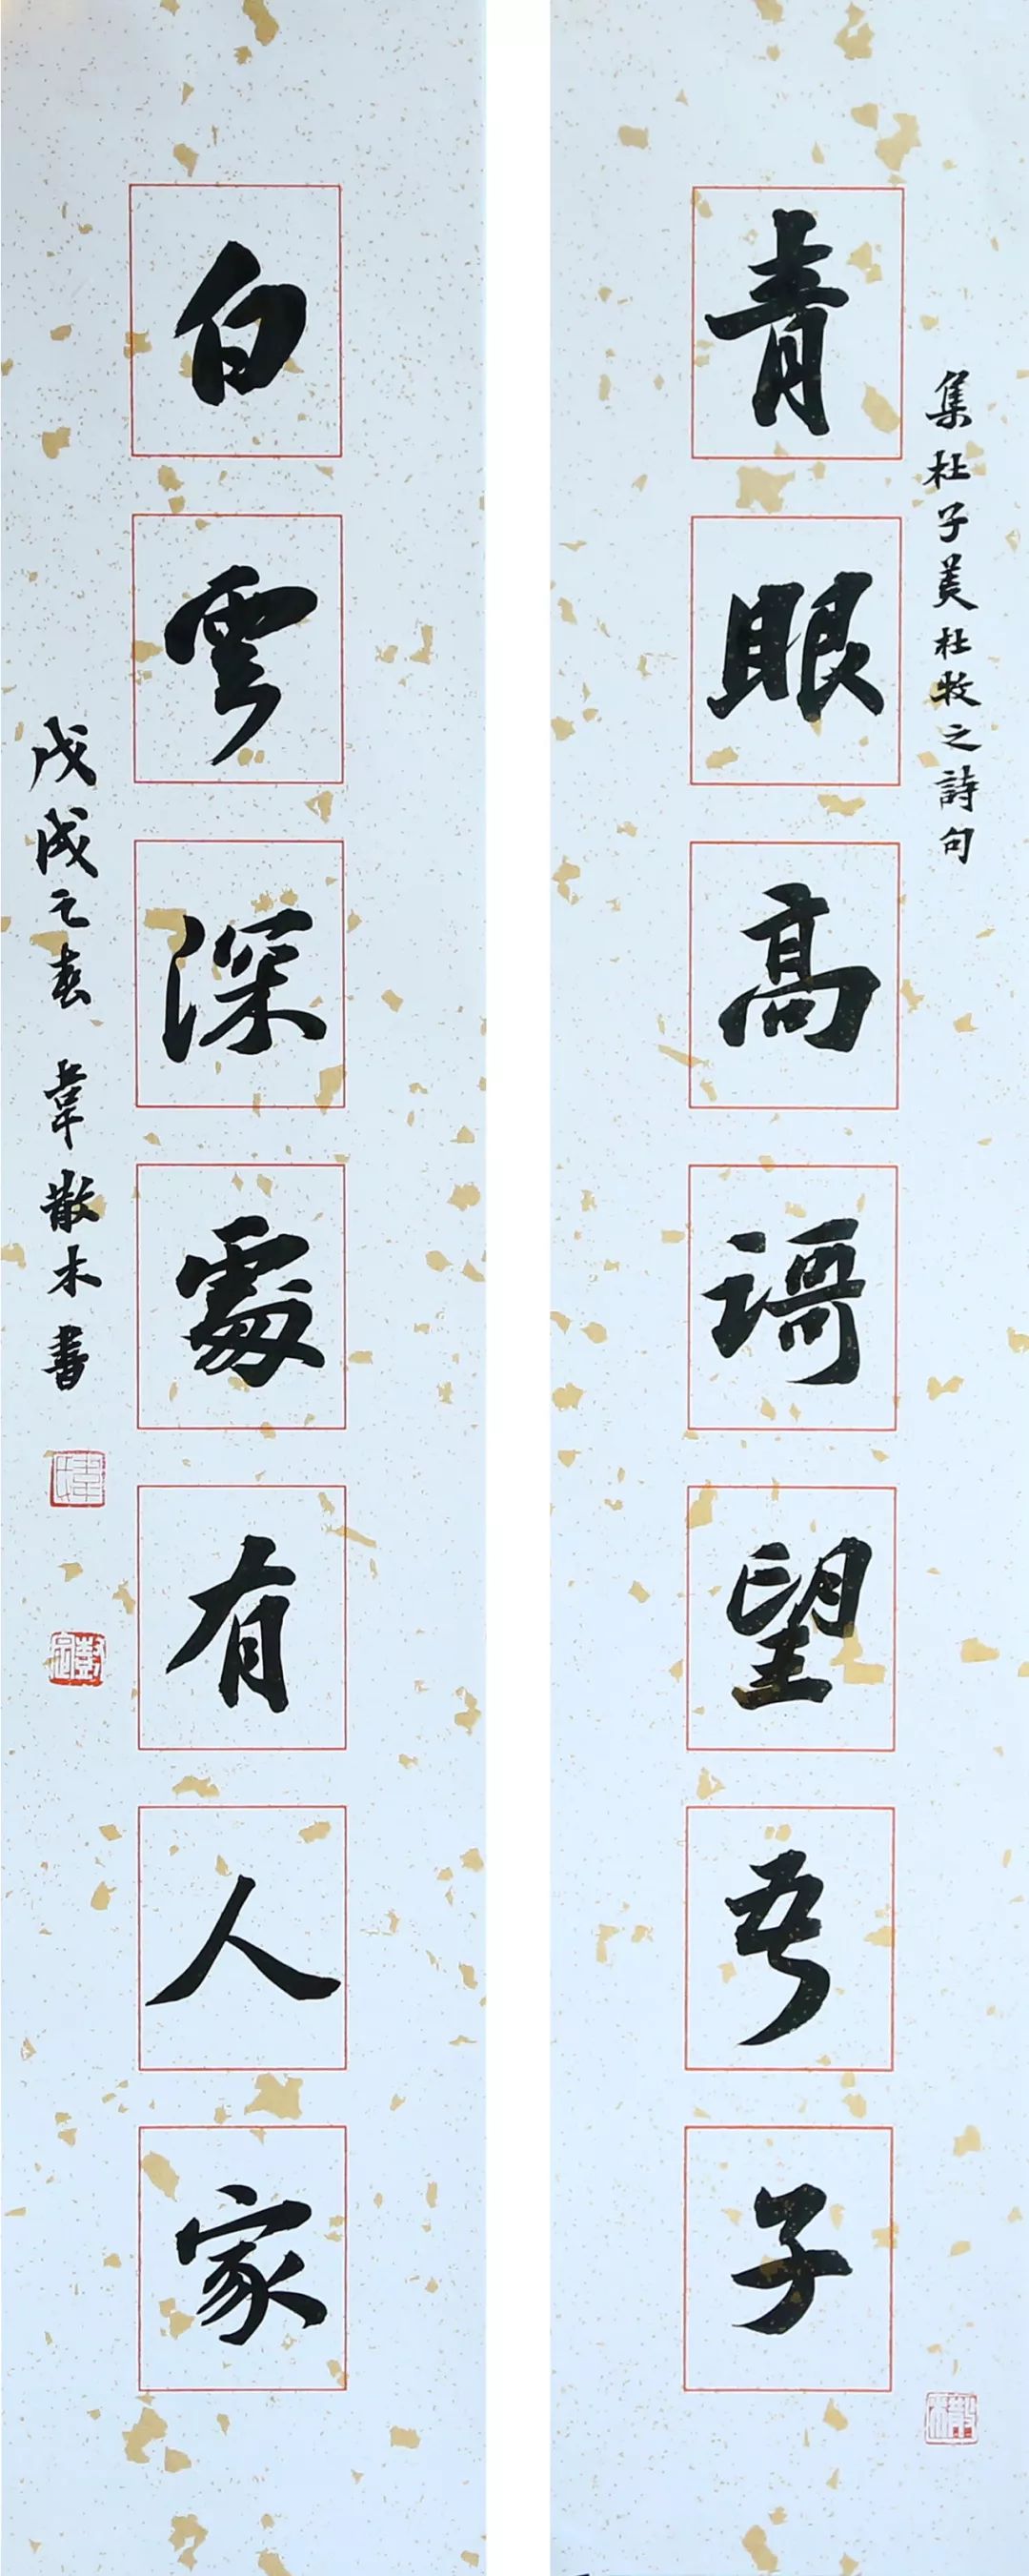 集杜子美杜牧之詩句
青眼高謌望吾子
散木
白雲深處有人家
戊戌之春 韋散木書